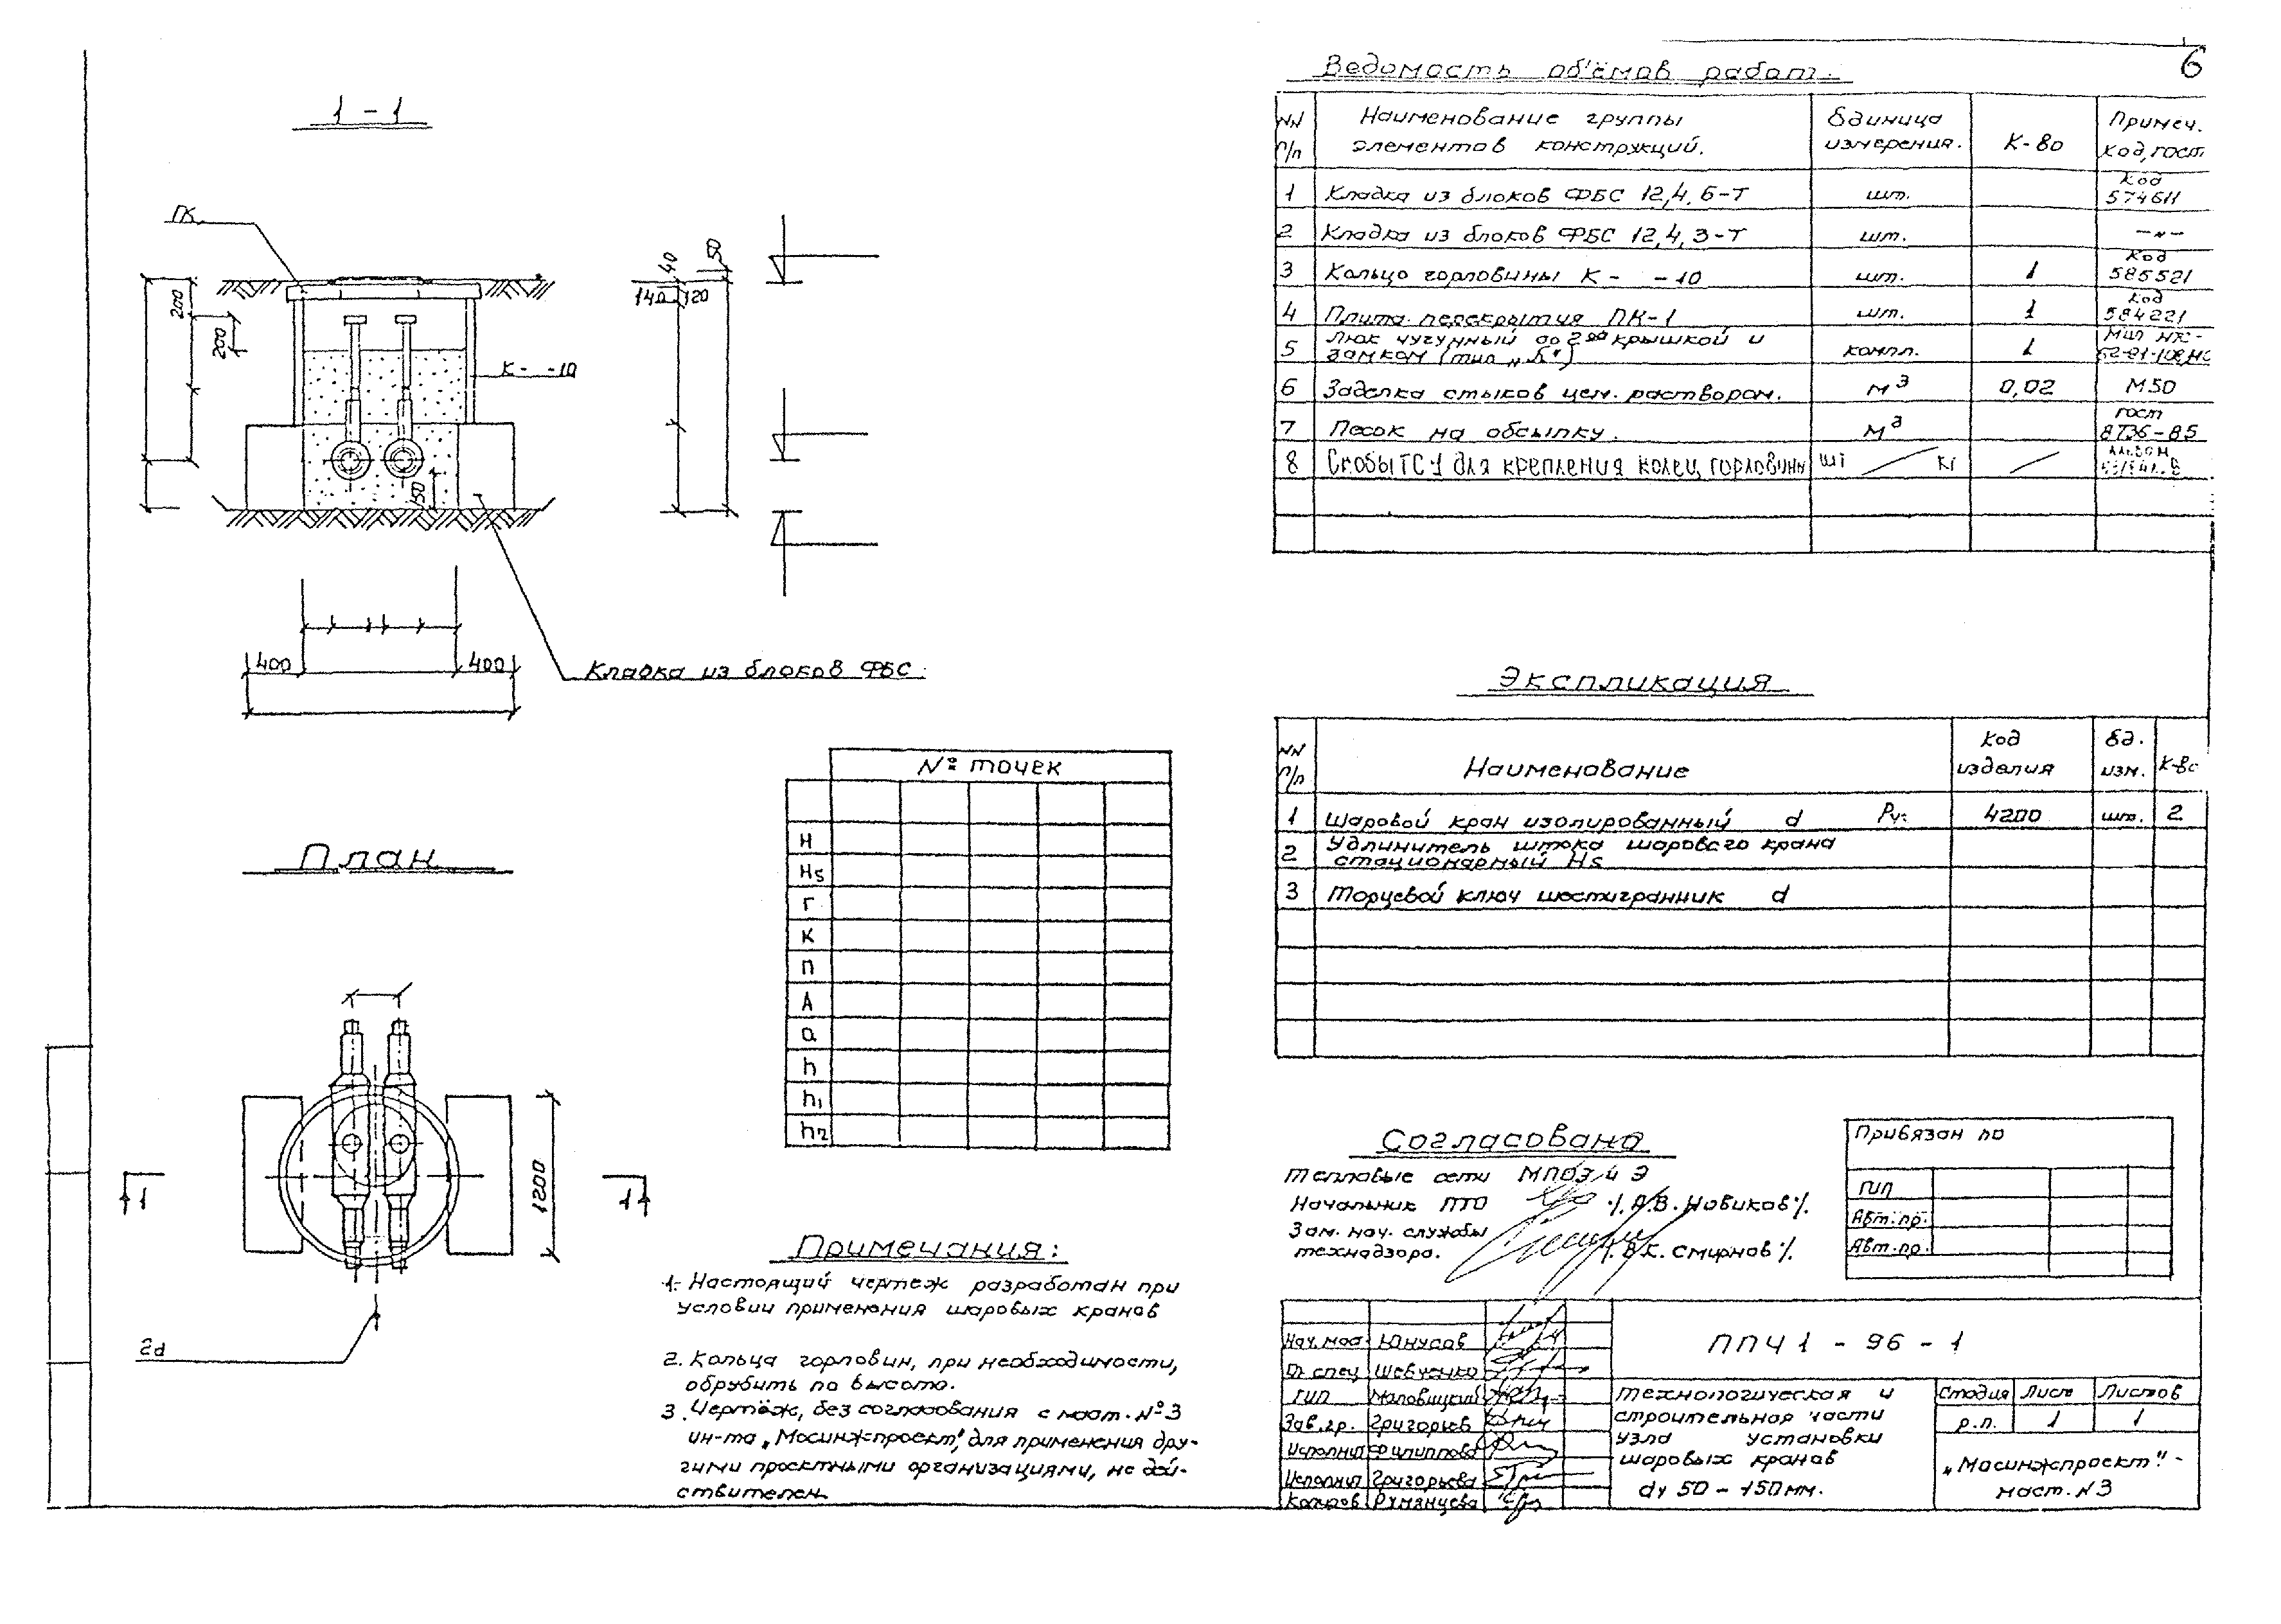 6
1 - 1
ПК
200
200
К- -10
150
400
400
Кладка из блоков ФБС.
40
50
140
120
План
1200
1
1
2d
№ точек
H
Hs
Г
К
П
А
а
h
h1
h2
Примечания:
1. Настоящий чертеж разработан при
условии применения шаровых кранов
2. Кольца горловин, при необходимости,
обрубить по высоте.
3. Чертёж, без согласования с маст. №3
ин-та „Мосинжпроект", для применения дру-
гими проектными организациями, не дей-
ствителен.
Ведомость об'ёмов работ.
NN п/п
Наименование группы элементов конструкций.
Единица измерения.
К-во
Примеч. Код, гост.
1 Кладка из блоков ФБС 12,4,6-Т шт. Код 574611
2 Кладка из блоков ФБС 12,4,3-Т шт. —"—
3 Кольцо горловины К- -10 шт. 1 Код 585521
4 Плита перекрытия ПК-1 шт. 1 Код 584221
5 Люк чугунный со 2ой крышкой и
замком (тип „Б") компл. 1
6 Заделка стыков цем. раствором. м3 0,02 М50
7 Песок на обсыпку. м3 гост 8736-85
8 Скобы ТС-1 для крепления колец горловины шт / кг
Экспликация
NN п/п
Наименование
Код изделия
Ед. изм.
К-во
1 Шаровой кран изолированный d Ру= 4200 шт. 2
2 Удлинитель штока шарового крана
стационарный Hs
3 Торцевой ключ шестигранник d
Согласовано
Тепловые сети МПОЭ и Э
Начальник ПТО /А.В. Новиков/.
Зам. нач. службы
технадзора. /В.К. Смирнов/.
Привязан по
ГИП
Авт.пр.
Авт.пр.
Нач.мас. Юнусов
Гл спец Шевченко
ГИП Маловицкий
Зав.гр. Григорьев
Исполнил Филиппова
Исполнил Григорьева
Копиров Румянцева
ППЧ1 - 96 - 1
Технологическая и
строительная части
узла установки
шаровых кранов
dу 50 - 150 мм.
Стадия Лист Листов
р.п. 1 1
„Мосинжпроект" -
маст. N3